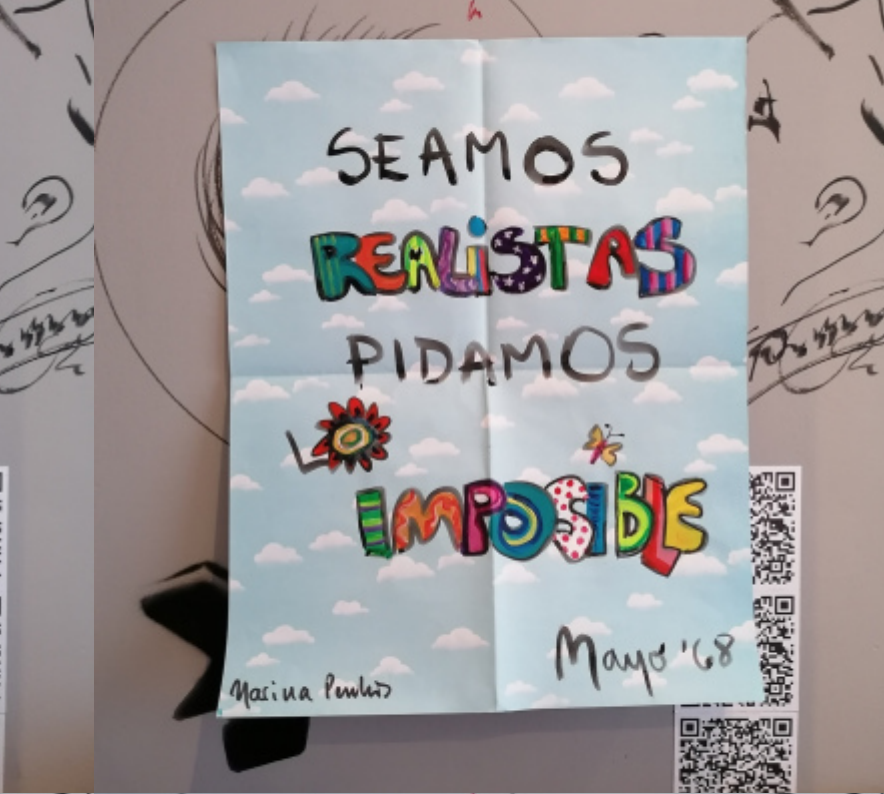 SEAMOS
REALISTAS
PIDAMOS
LO
IMPOSIBLE
Mayo '68
Marina